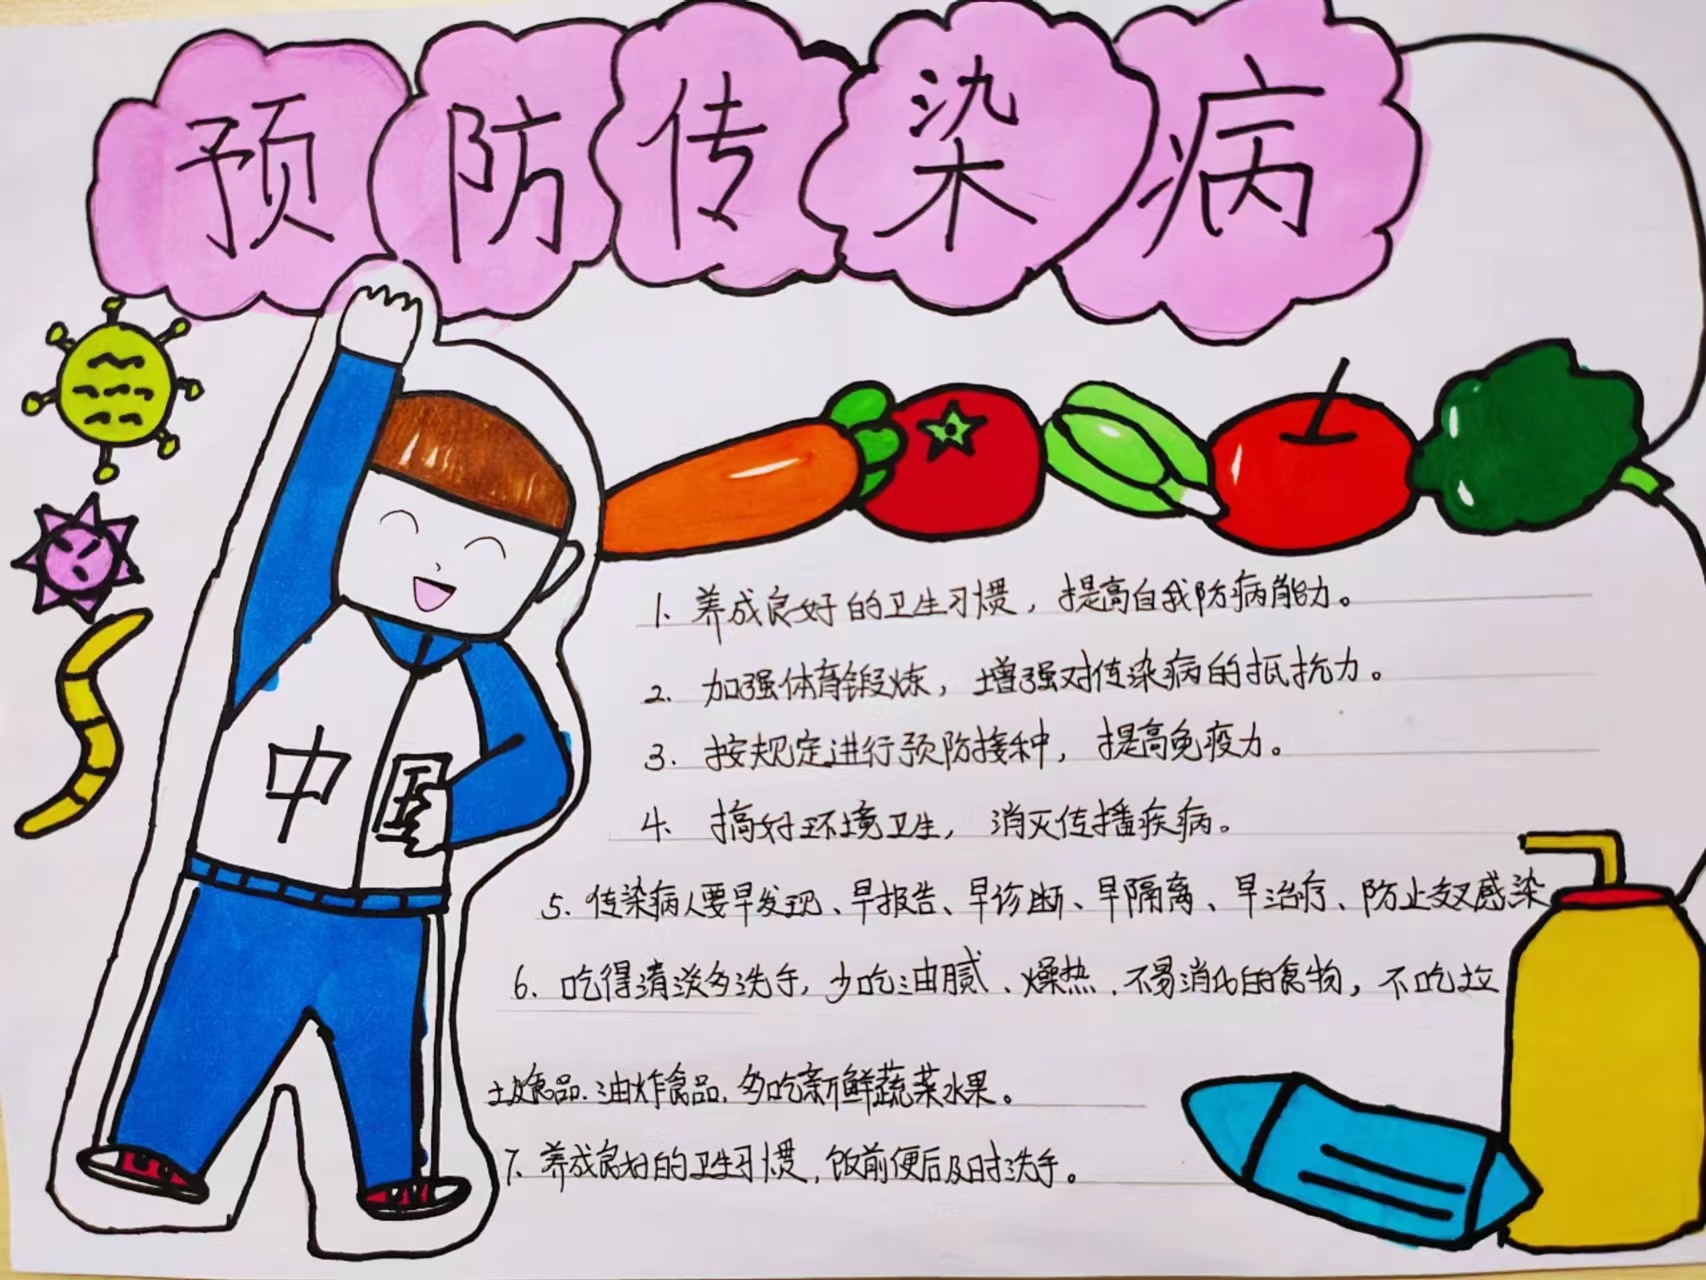 预防传染病
中国
1. 养成良好的卫生习惯，提高自我防病能力。
2. 加强体育锻炼，增强对传染病的抵抗力。
3. 按规定进行预防接种，提高免疫力。
4. 搞好环境卫生，消灭传播疾病。
5. 传染病人要早发现、早报告、早诊断、早隔离、早治疗、防止交叉感染
6. 吃得清淡多洗手，少吃油腻、燥热、不易消化的食物，不吃垃
圾食品、油炸食品，多吃新鲜蔬菜水果。
7. 养成良好的卫生习惯，饭前便后及时洗手。